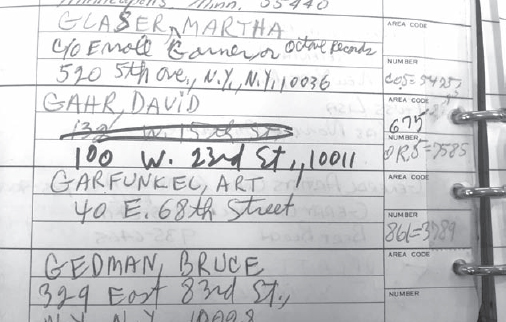 Minneapolis, Minn. 55440
GLASER, MARTHA
AREA CODE
c/o Erroll Garner or Octave Records
NUMBER
520 5th Ave., N.Y., N.Y., 10036
CO5=5425
GAHR, DAVID
AREA CODE
675
NUMBER
100 W. 23rd St., 10011
OR.5=7585
GARFUNKEL, ART
AREA CODE
40 E. 68th Street
NUMBER
861=3789
GEDMAN, BRUCE
AREA CODE
329 East 83rd St.,
NUMBER
N.Y., N.Y.